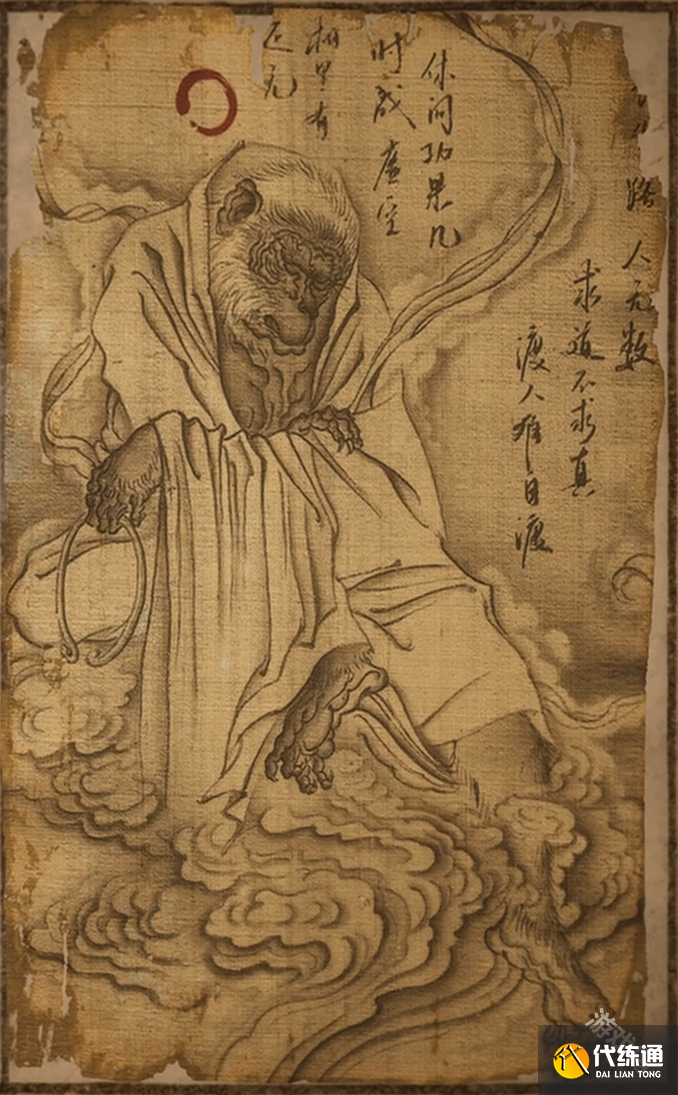 路人无数
求道不求真
渡人难自渡
休问功果几
时成虚空
相里有
无
代练通
DAI LIAN TONG